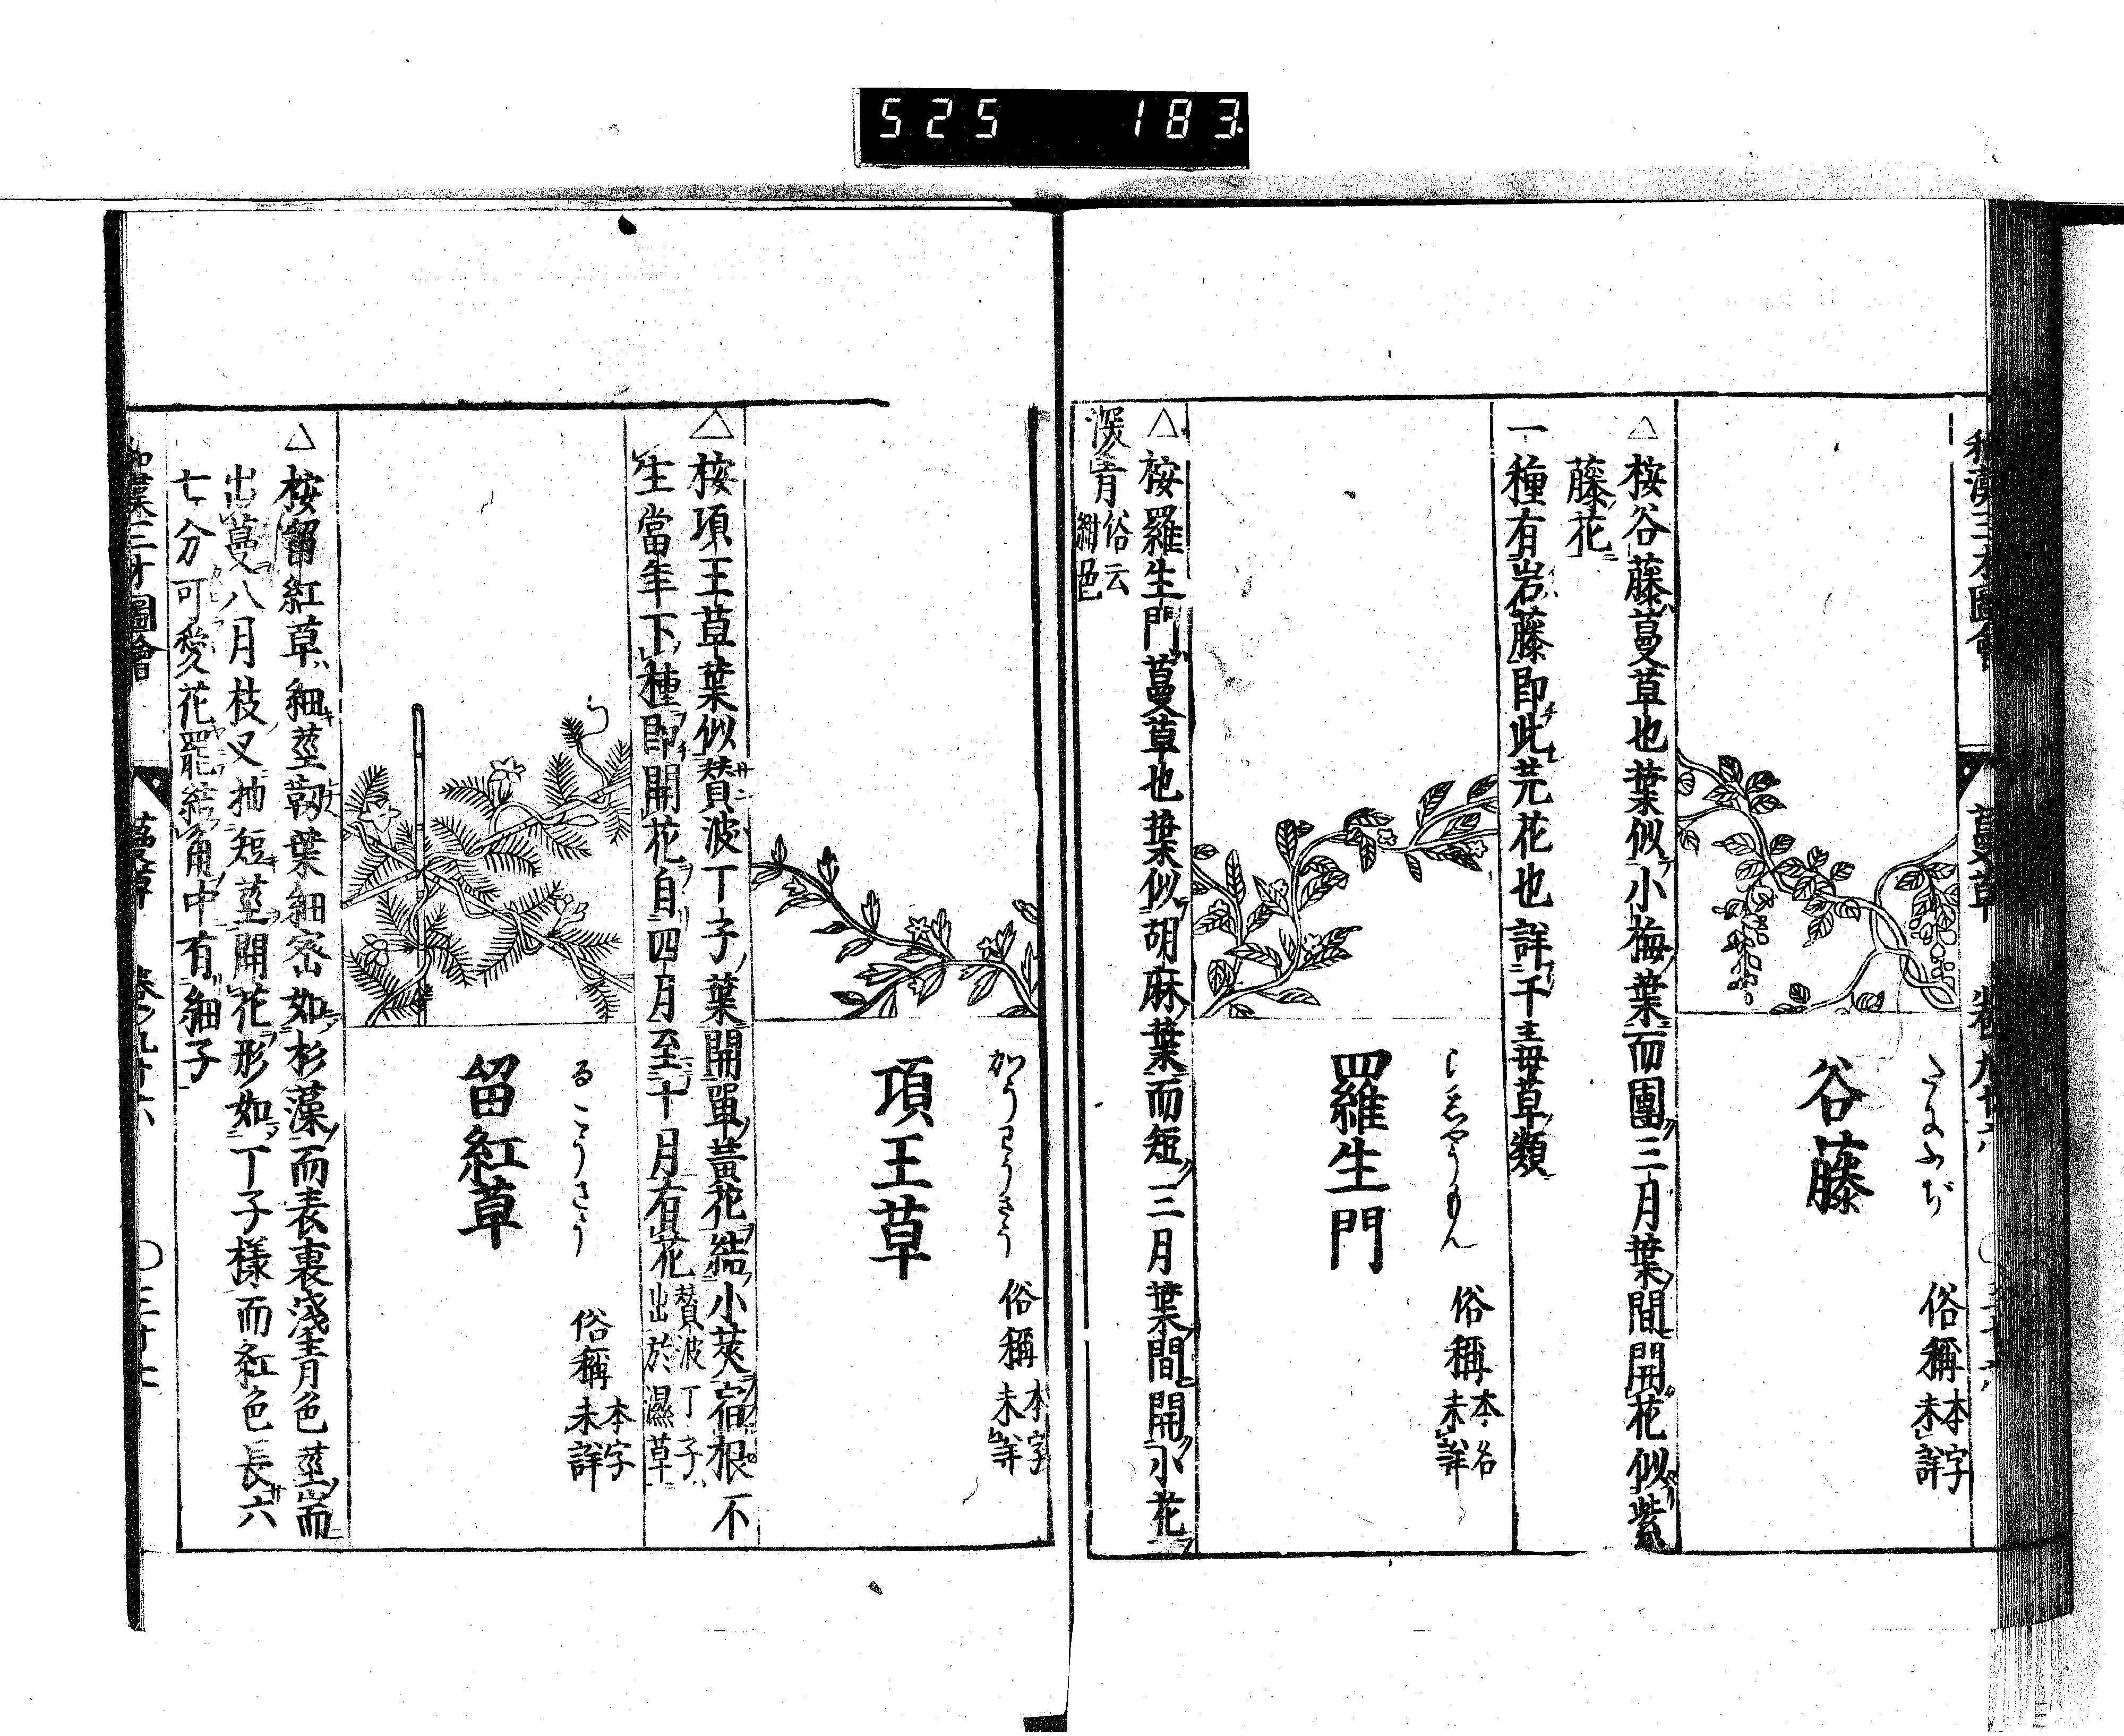 525 183
和漢三才圖會 蔓草 卷九十六
谷藤
たにふぢ
俗稱 本字未詳
△按谷藤蔓草也葉似小梅葉而團三月葉間開花似紫
藤花
一種有岩藤即此芫花也詳于毒草類
羅生門
らしやうもん
俗稱 本名未詳
△按羅生門蔓草也葉似胡麻葉而短三月葉間開小花
深青 俗云紺色
項王草
かうわうさう
俗稱 本字未詳
△按項王草葉似賛波丁子葉開單黃花結小莢宿根不
生當年下種即開花自四月至十月有花 賛波丁子出於濕草
留紅草
るこうさう
俗稱 本字未詳
△按留紅草細莖韌葉細宻如杉藻而表裏淺青色莖而
出蔓八月枝叉抽短莖開花形如丁子樣而紅色長六
七分可愛花罷結角中有細子
和漢三才圖會 蔓草 卷之九十六 〇三十七